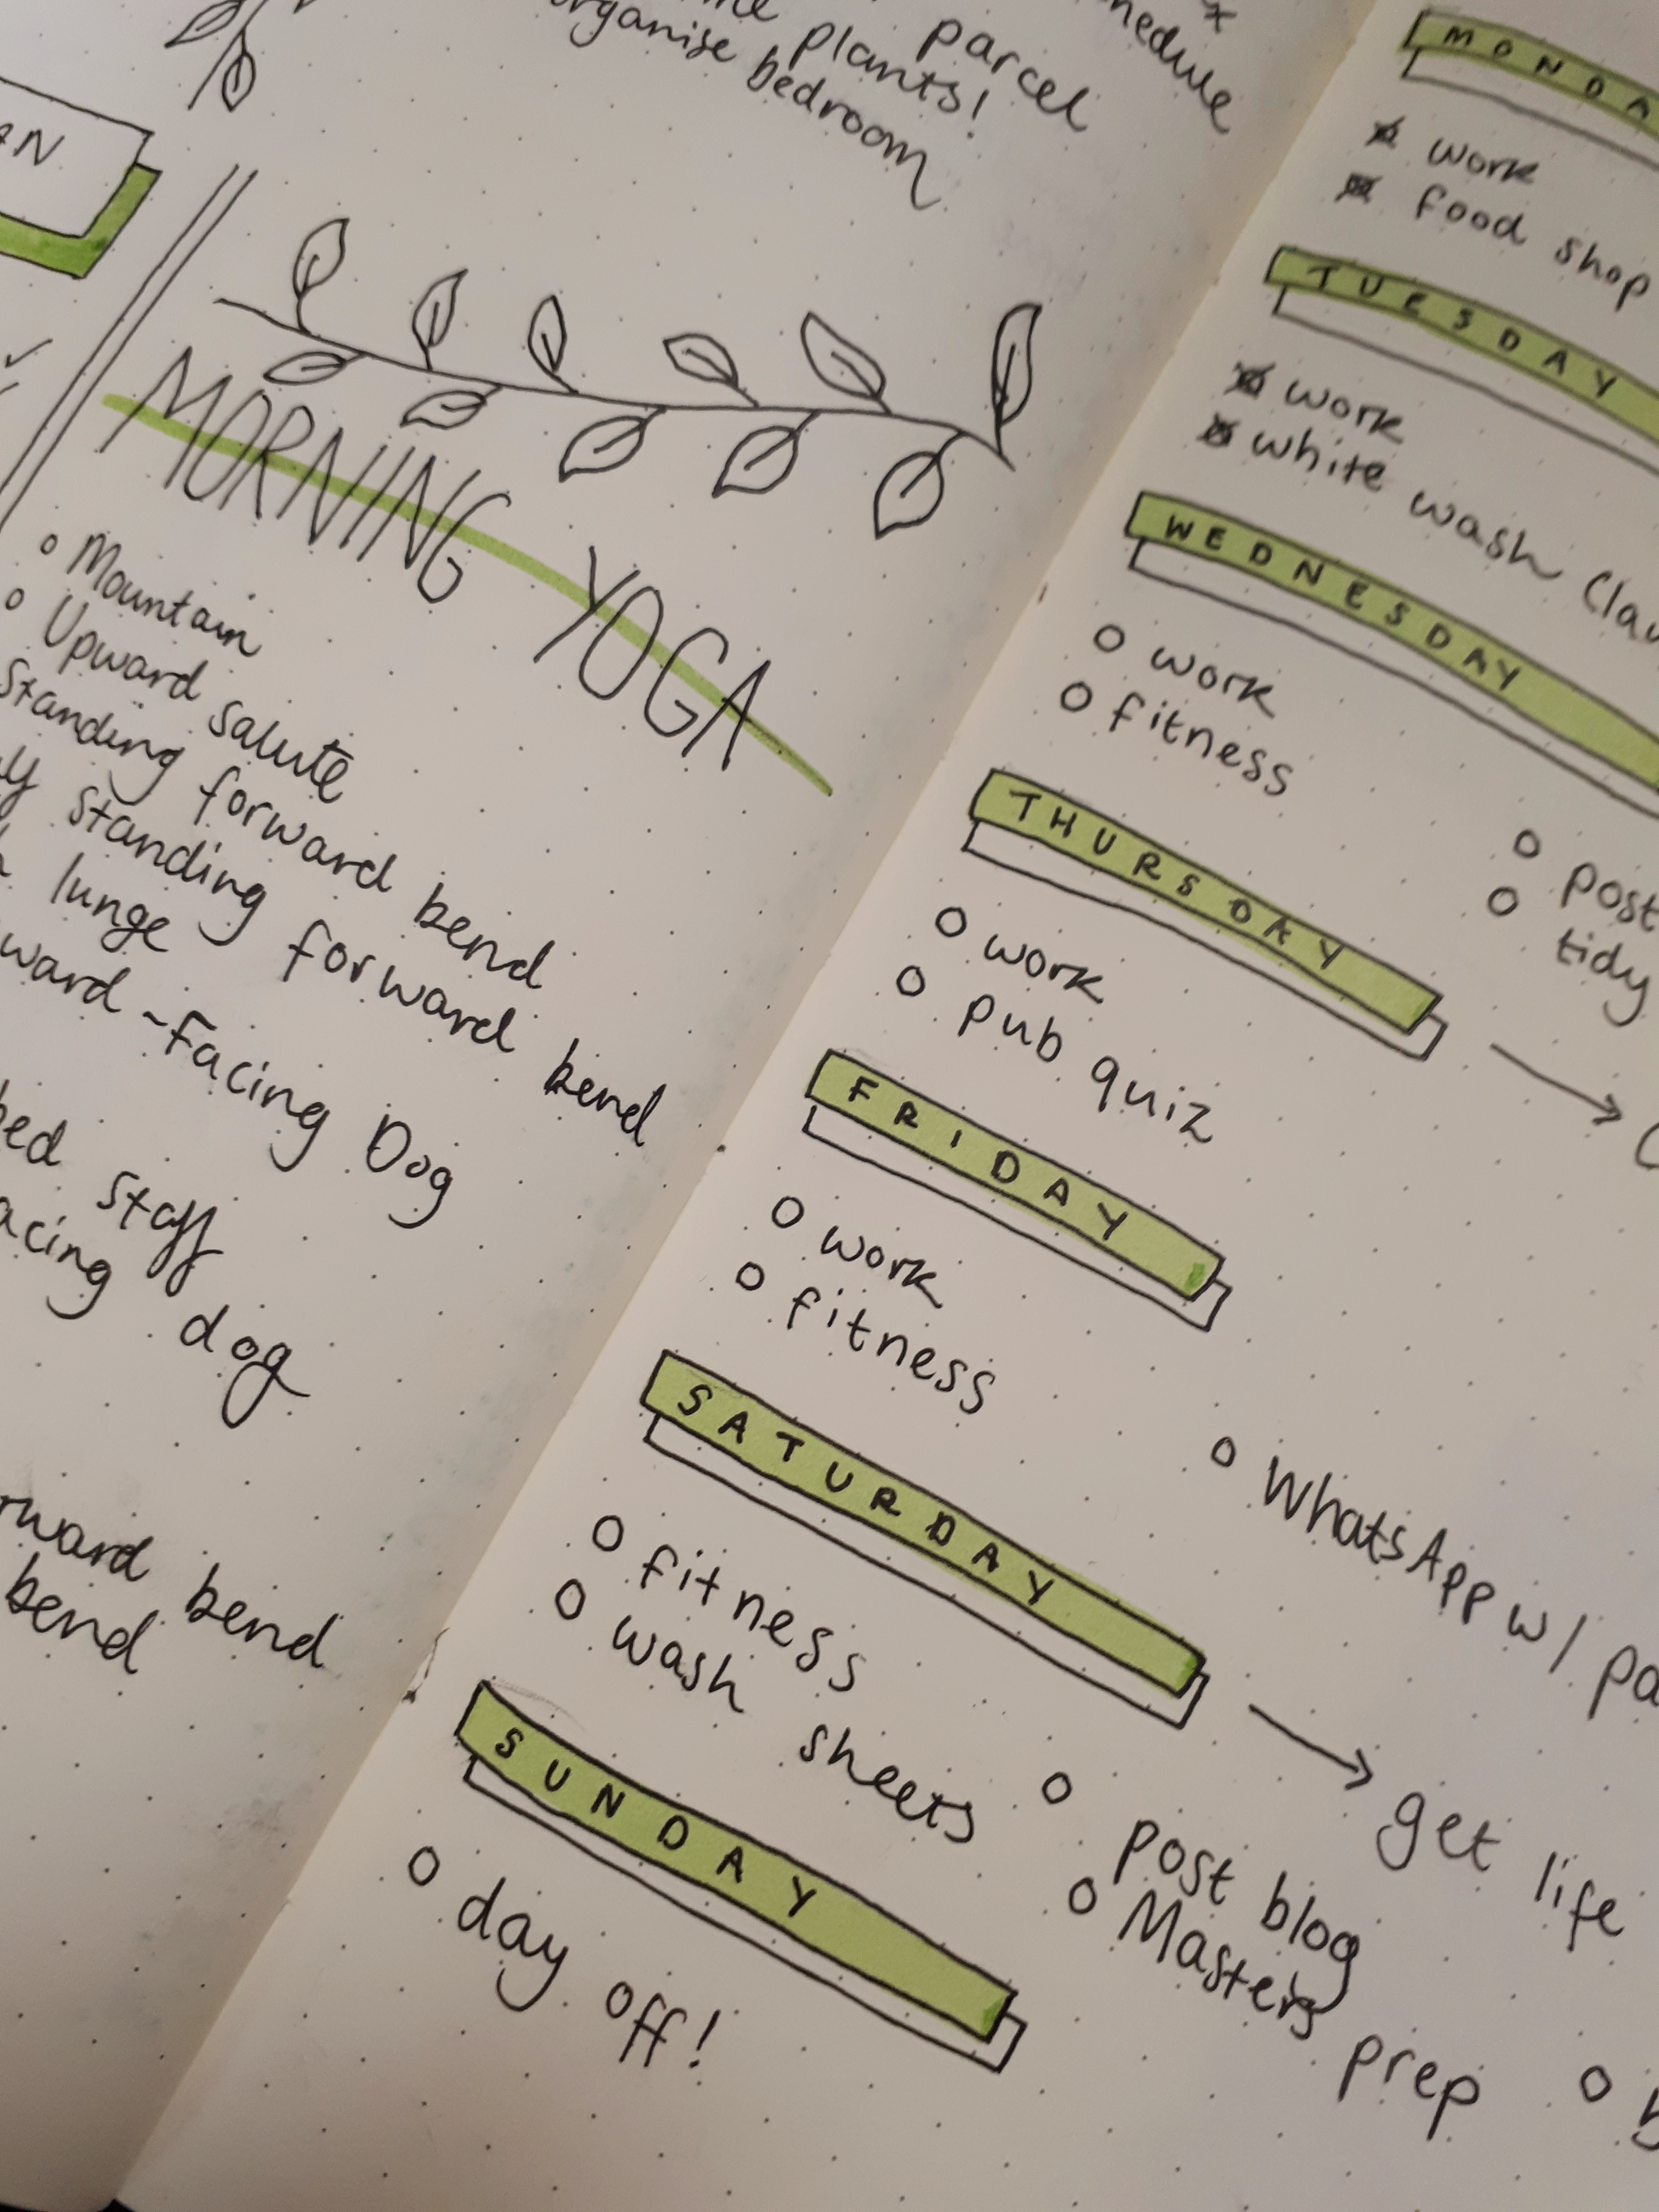 parcel
plants!
organise bedroom
MORNING YOGA
Mountain
Upward salute
Standing forward bend
standing forward bend
lunge
-Facing Dog
staff
dog
bend
bend
work
food shop
TUESDAY
work
white wash
WEDNESDAY
work
fitness
post
tidy
THURSDAY
work
pub quiz
FRIDAY
work
fitness
WhatsApp w/
SATURDAY
fitness
wash sheets
→ get life
post blog
Masters prep
SUNDAY
day off!